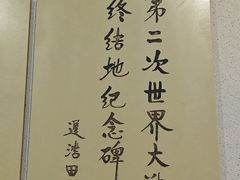 第二次世界大
终结地纪念碑
迟浩田